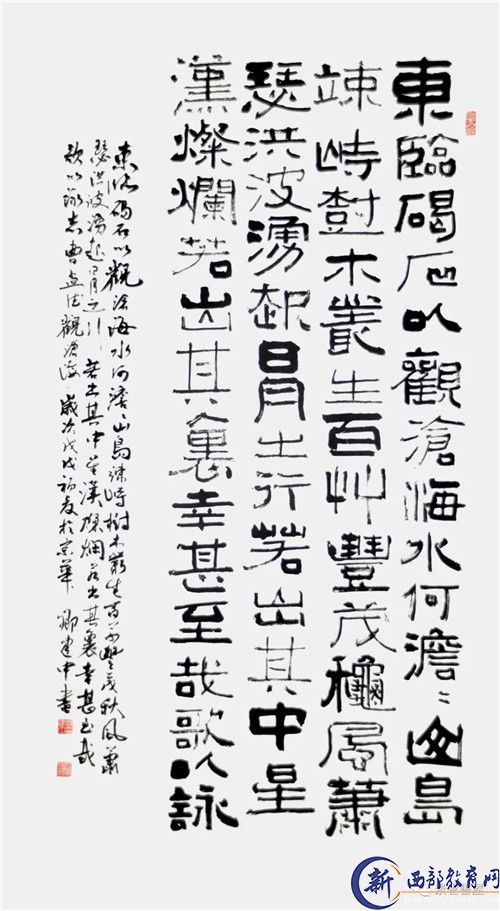 東臨碣石以觀滄海水何澹〻山島
竦峙樹木叢生百艸豐茂穐風蕭
瑟洪波湧起日月之行若出其中星
漢燦爛若出其裏幸甚至哉歌以詠
東臨碣石以觀滄海水何澹〻山島竦峙樹木叢生百草豐茂秋風蕭
瑟洪波湧起日月之行若出其中星漢燦爛若出其裏幸甚至哉
歌以詠志曹孟德觀滄海 歲次戊戌初夏於京華 卿建中書
新 西部教育网